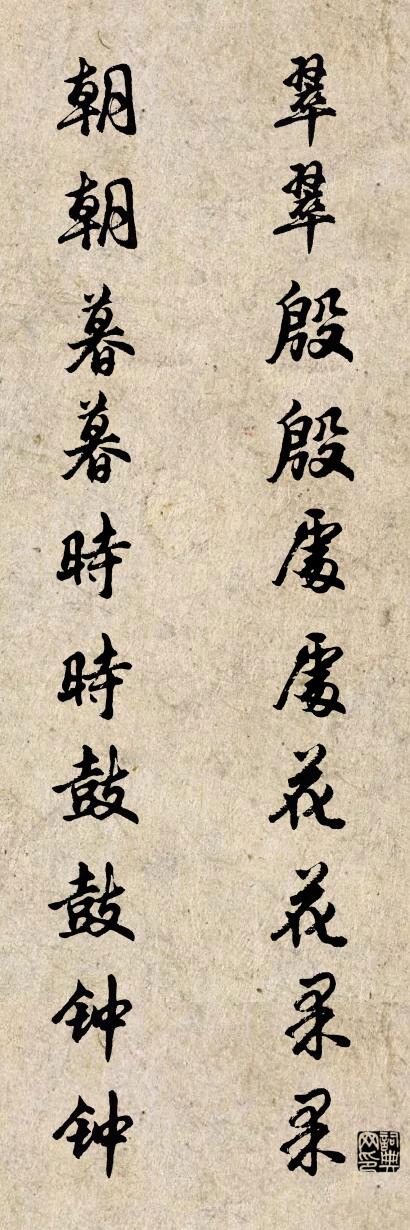 翠翠殷殷處處花花果果
朝朝暮暮時時鼓鼓钟钟
詞典网印